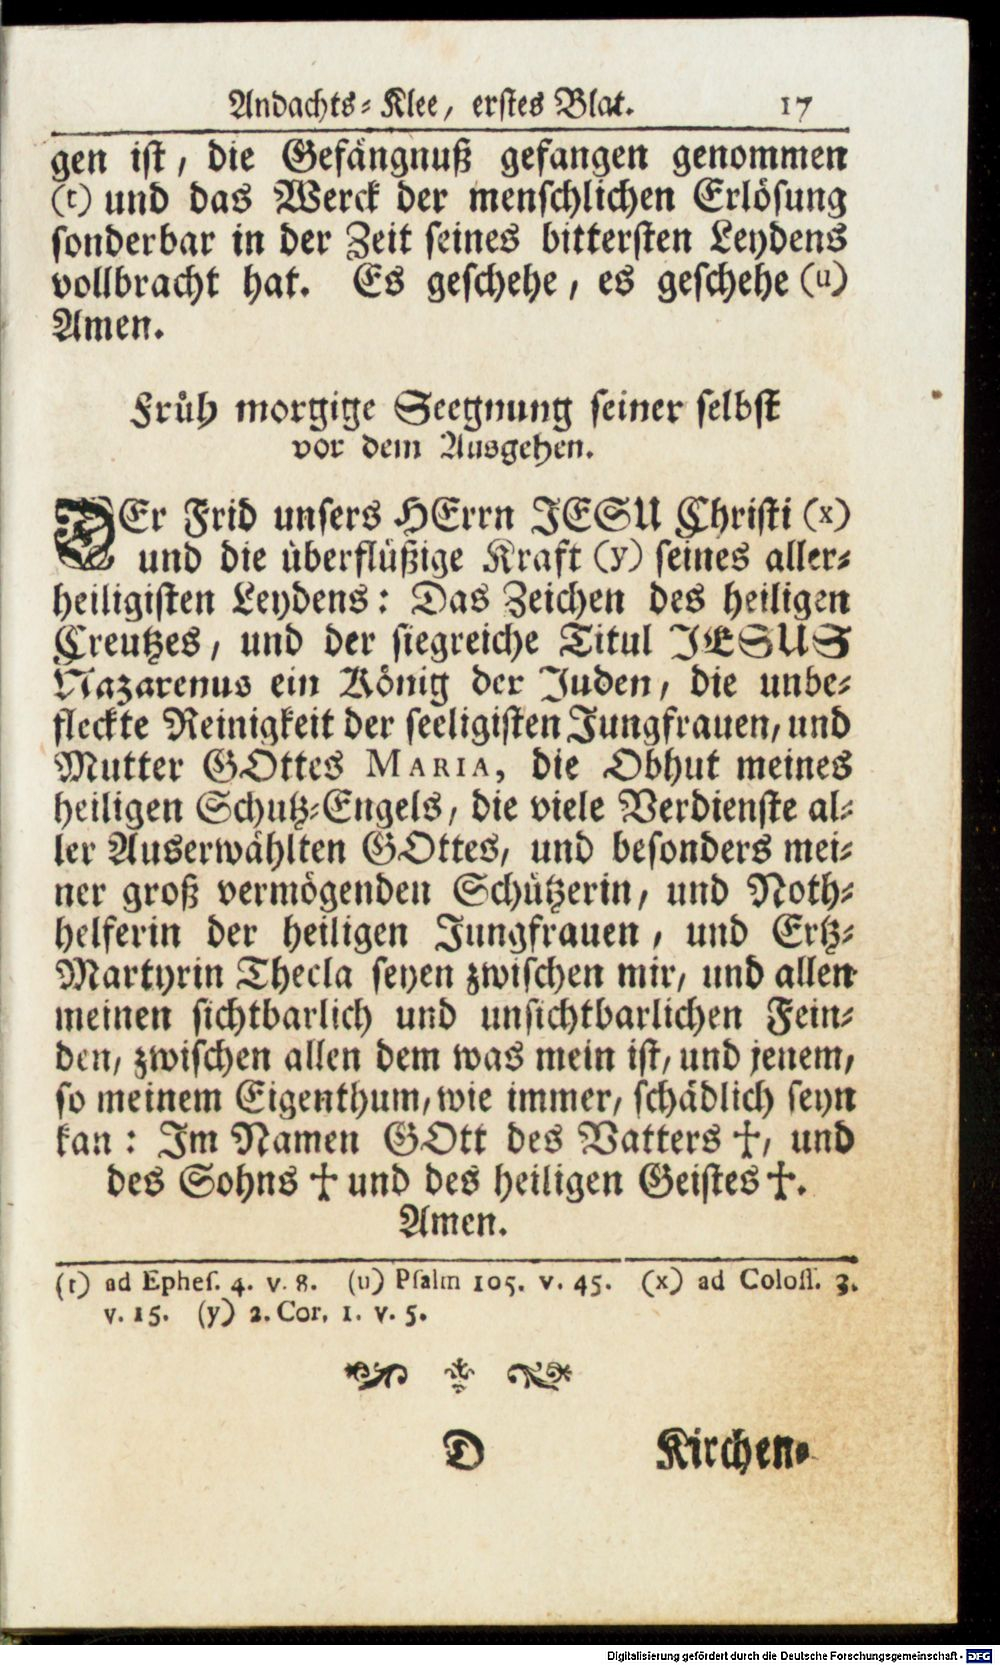 Andachts-Klee, erstes Blat. 17
gen ist, die Gefängnuß gefangen genommen
(t) und das Werck der menschlichen Erlösung
sonderbar in der Zeit seines bittersten Leydens
vollbracht hat. Es geschehe, es geschehe (u)
Amen.
Früh morgige Seegnung seiner selbst
vor dem Ausgehen.
DEr Frid unsers HErrn JESU Christi (x)
und die überflüßige Kraft (y) seines aller-
heiligisten Leydens: Das Zeichen des heiligen
Creutzes, und der siegreiche Titul JESUS
Nazarenus ein König der Juden, die unbe-
fleckte Reinigkeit der seeligisten Jungfrauen, und
Mutter GOttes MARIA, die Obhut meines
heiligen Schutz-Engels, die viele Verdienste al-
ler Auserwählten GOttes, und besonders mei-
ner groß vermögenden Schützerin, und Noth-
helferin der heiligen Jungfrauen, und Ertz-
Martyrin Thecla seyen zwischen mir, und allen
meinen sichtbarlich und unsichtbarlichen Fein-
den, zwischen allen dem was mein ist, und jenem,
so meinem Eigenthum, wie immer, schädlich seyn
kan: Im Namen GOtt des Vatters ✝, und
des Sohns ✝ und des heiligen Geistes ✝.
Amen.
(t) ad Ephes. 4. v. 8. (u) Psalm 105. v. 45. (x) ad Coloss. 3.
v. 15. (y) 2. Cor. 1. v. 5.
D Kirchen-
Digitalisierung gefördert durch die Deutsche Forschungsgemeinschaft - DFG